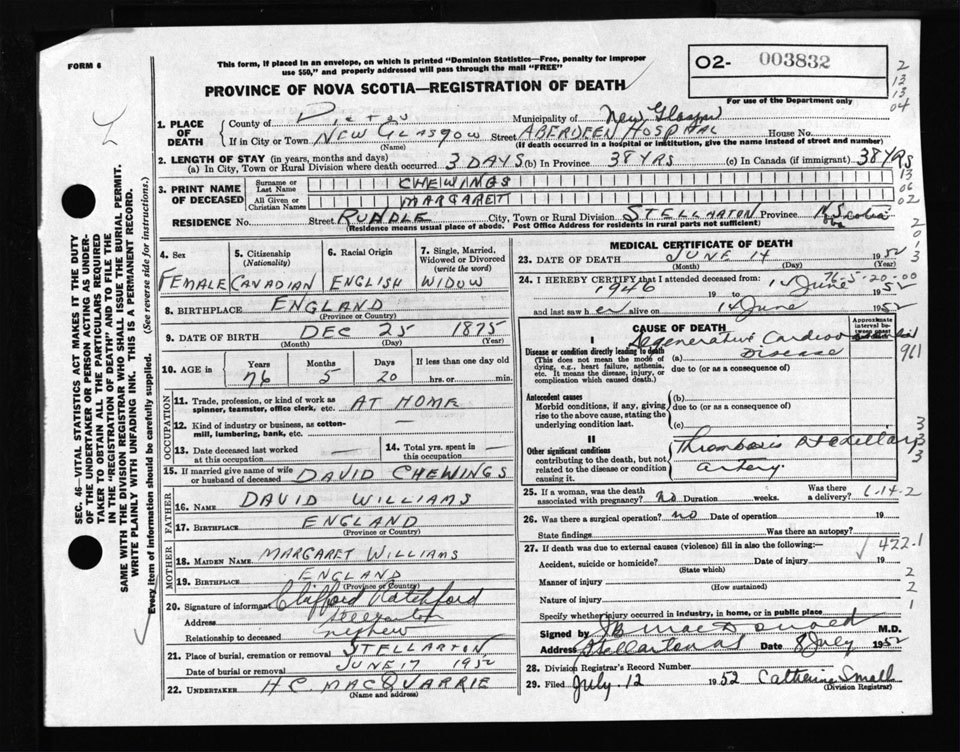 FORM 6
This form, if placed in an envelope, on which is printed "Dominion Statistics—Free, penalty for improper
use $50," and properly addressed will pass through the mail "FREE"
O2- 003832
For use of the Department only
2
13
13
04
PROVINCE OF NOVA SCOTIA—REGISTRATION OF DEATH
1. PLACE OF DEATH
County of Pictou Municipality of New Glasgow
If in City or Town NEW GLASGOW Street ABERDEEN HOSPITAL House No.
(Name) (If death occurred in a hospital or institution, give the name instead of street and number)
2. LENGTH OF STAY (in years, months and days)
(a) In City, Town or Rural Division where death occurred 3 DAYS (b) In Province 38 YRS (c) In Canada (if immigrant) 38 YRS
13
06
02
3. PRINT NAME OF DECEASED
Surname or Last Name CHEWINGS
All Given or Christian Names MARGARET
RESIDENCE No. Street RUNDLE City, Town or Rural Division STELLARTON Province N. Scotia
(Residence means usual place of abode. Post Office Address for residents in rural parts not sufficient)
4. Sex
FEMALE
5. Citizenship
(Nationality)
CANADIAN
6. Racial Origin
ENGLISH
7. Single, Married,
Widowed or Divorced
(write the word)
WIDOW
8. BIRTHPLACE ENGLAND
(Province or Country)
9. DATE OF BIRTH DEC 25 1875
(Month) (Day) (Year)
10. AGE in
Years Months Days If less than one day old
76 5 20 hrs. or min.
OCCUPATION
11. Trade, profession, or kind of work as
spinner, teamster, office clerk, etc. AT HOME
12. Kind of industry or business, as cotton-
mill, lumbering, bank, etc. —
13. Date deceased last worked
at this occupation —
14. Total yrs. spent in
this occupation —
15. If married give name of wife
or husband of deceased DAVID CHEWINGS
FATHER
16. Name DAVID WILLIAMS
17. Birthplace ENGLAND
(Province or Country)
MOTHER
18. MAIDEN NAME MARGARET WILLIAMS
19. Birthplace ENGLAND
(Province or Country)
20. Signature of informant Clifford Ratchford
Address Stellarton
Relationship to deceased nephew
21. Place of burial, cremation or removal STELLARTON
Date of burial or removal JUNE 17 1952
22. UNDERTAKER H C MACQUARRIE
(Name and address)
MEDICAL CERTIFICATE OF DEATH
23. DATE OF DEATH JUNE 14 1952
(Month) (Day) (Year)
76-5-20-00
24. I HEREBY CERTIFY that I attended deceased from:
1946 19 to 14 June 1952
and last saw her alive on 14 June 1952
CAUSE OF DEATH
Approximate
interval be-
tween onset
I
Disease or condition directly leading to death
(This does not mean the mode of
dying, e.g., heart failure, asthenia,
etc. It means the disease, injury, or
complication which caused death.)
(a) Degenerative Cardiac Disease
due to (or as a consequence of)
Antecedent causes
Morbid conditions, if any, giving
rise to the above cause, stating the
underlying condition last.
(b)
due to (or as a consequence of)
(c)
II
Other significant conditions
contributing to the death, but not
related to the disease or condition
causing it.
Thrombosis
artery.
3
3
3
25. If a woman, was the death
associated with pregnancy? no Duration weeks. Was there
a delivery? 6-14-2
26. Was there a surgical operation? no Date of operation 19
State findings Was there an autopsy?
27. If death was due to external causes (violence) fill in also the following:— 422.1
Accident, suicide or homicide? Date of injury 19
(State which)
Manner of injury
(How sustained)
Nature of injury
Specify whether injury occurred in industry, in home, or in public place
2
2
1
Signed by J B MacDonald M.D.
Address Stellarton NS Date 8 July 1952
28. Division Registrar's Record Number
29. Filed July 12 1952 Catherine Small
(Division Registrar)
SEC. 46—VITAL STATISTICS ACT MAKES IT THE DUTY
OF THE UNDERTAKER OR PERSON ACTING AS UNDER-
TAKER TO OBTAIN ALL THE PARTICULARS REQUIRED
IN THE "REGISTRATION OF DEATH" AND TO FILE THE
SAME WITH THE DIVISION REGISTRAR WHO SHALL ISSUE THE BURIAL PERMIT.
WRITE PLAINLY WITH UNFADING INK. THIS IS A PERMANENT RECORD.
Every item of information should be carefully supplied. (See reverse side for instructions.)